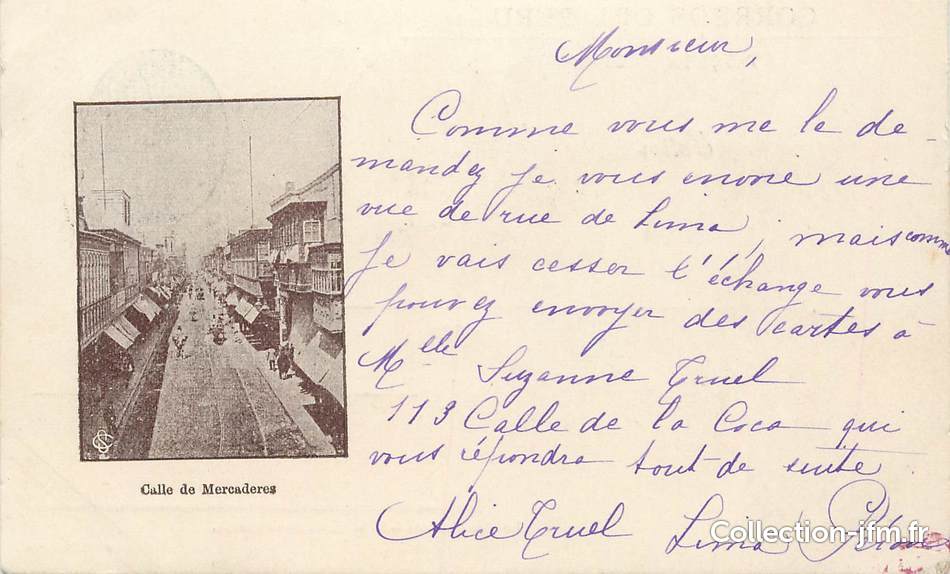 Monsieur,
Comme vous me le de
mandez je vous envoie une
vue de rue de Lima, mais comme
je vais cesser l'échange vous
pouvez envoyer des cartes à
Mlle Suzanne Truel
113 Calle de la Coca qui
vous répondra tout de suite
Alice Truel Lima
Calle de Mercaderes
Collection-jfm.fr